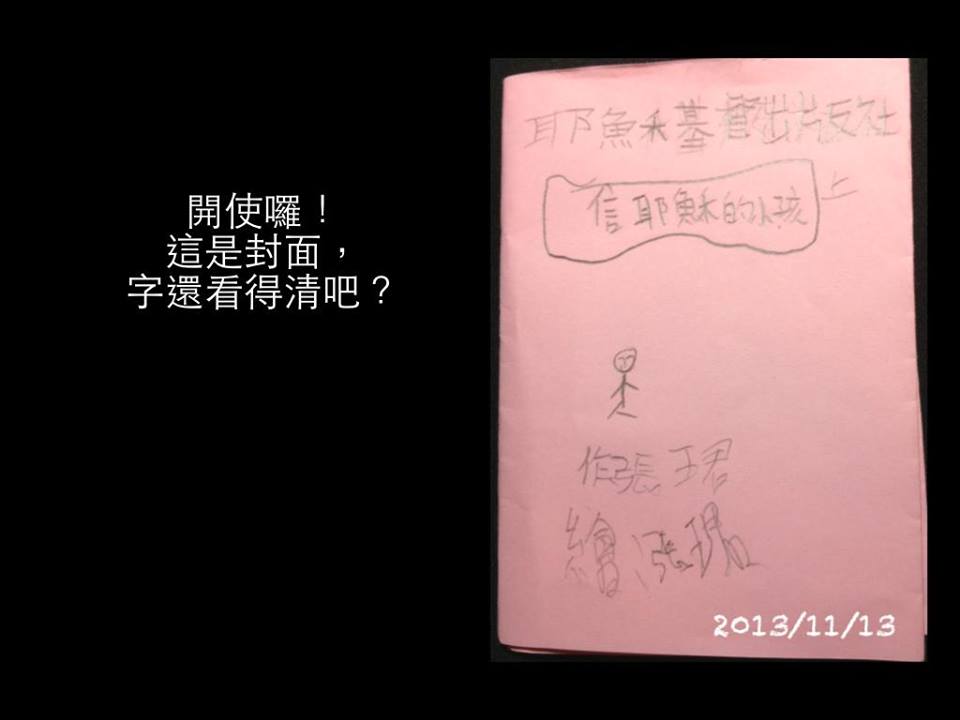 開使囉！
這是封面，
字還看得清吧？
耶穌基督出版社
信耶穌的小孩 上
作張珺
繪張珺
2013/11/13